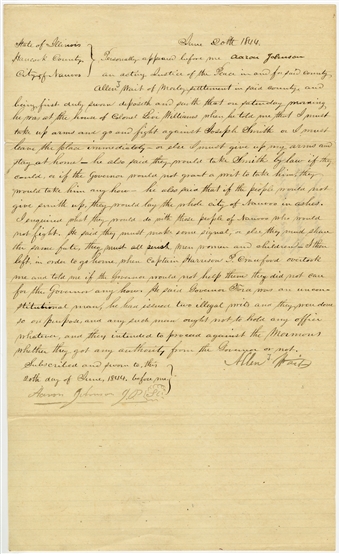 State of Illinois June 20th 1844.
Hancock County
City of Nauvoo
Personally appeared before me Aaron Johnson
an acting Justice of the Peace in and for said county,
Allen T Wait of Morley settlement in said county, and
being first duly sworn deposeth and saith that on saturday morning
he was at the house of Colonel Levi Williams when he told me that I must
take up arms and go and fight against Joseph Smith or I must
leave the place immediately or else I must give up my arms and
stay at home he also said they would take Smith by law if they
could, & if the Governor would not grant a writ to take him, they
would take him any how he also said that if the people would not
give Smith up, they would lay the whole city of Nauvoo in ashes.
I enquired what they would do with those people of Nauvoo who would
not fight. He said they must make some signal, or else they must share
the same fate, they must all men women and children I then
left in order to go home when Captain Harrison P. Crawford overtook
me and told me if the Governor would not help them they did not care
for the Governor any how. He said Governor Ford was an uncon-
stitutional man, he had issued two illegal writs and they was done
so on purpose, and any such man ought not to hold any office
whatever, and they intended to proceed against the Mormons
whether they got any authority from the Governor or not.
Subscribed and sworn to, this Allen T Wait
20th day of June, 1844, before me
Aaron Johnson J.P.